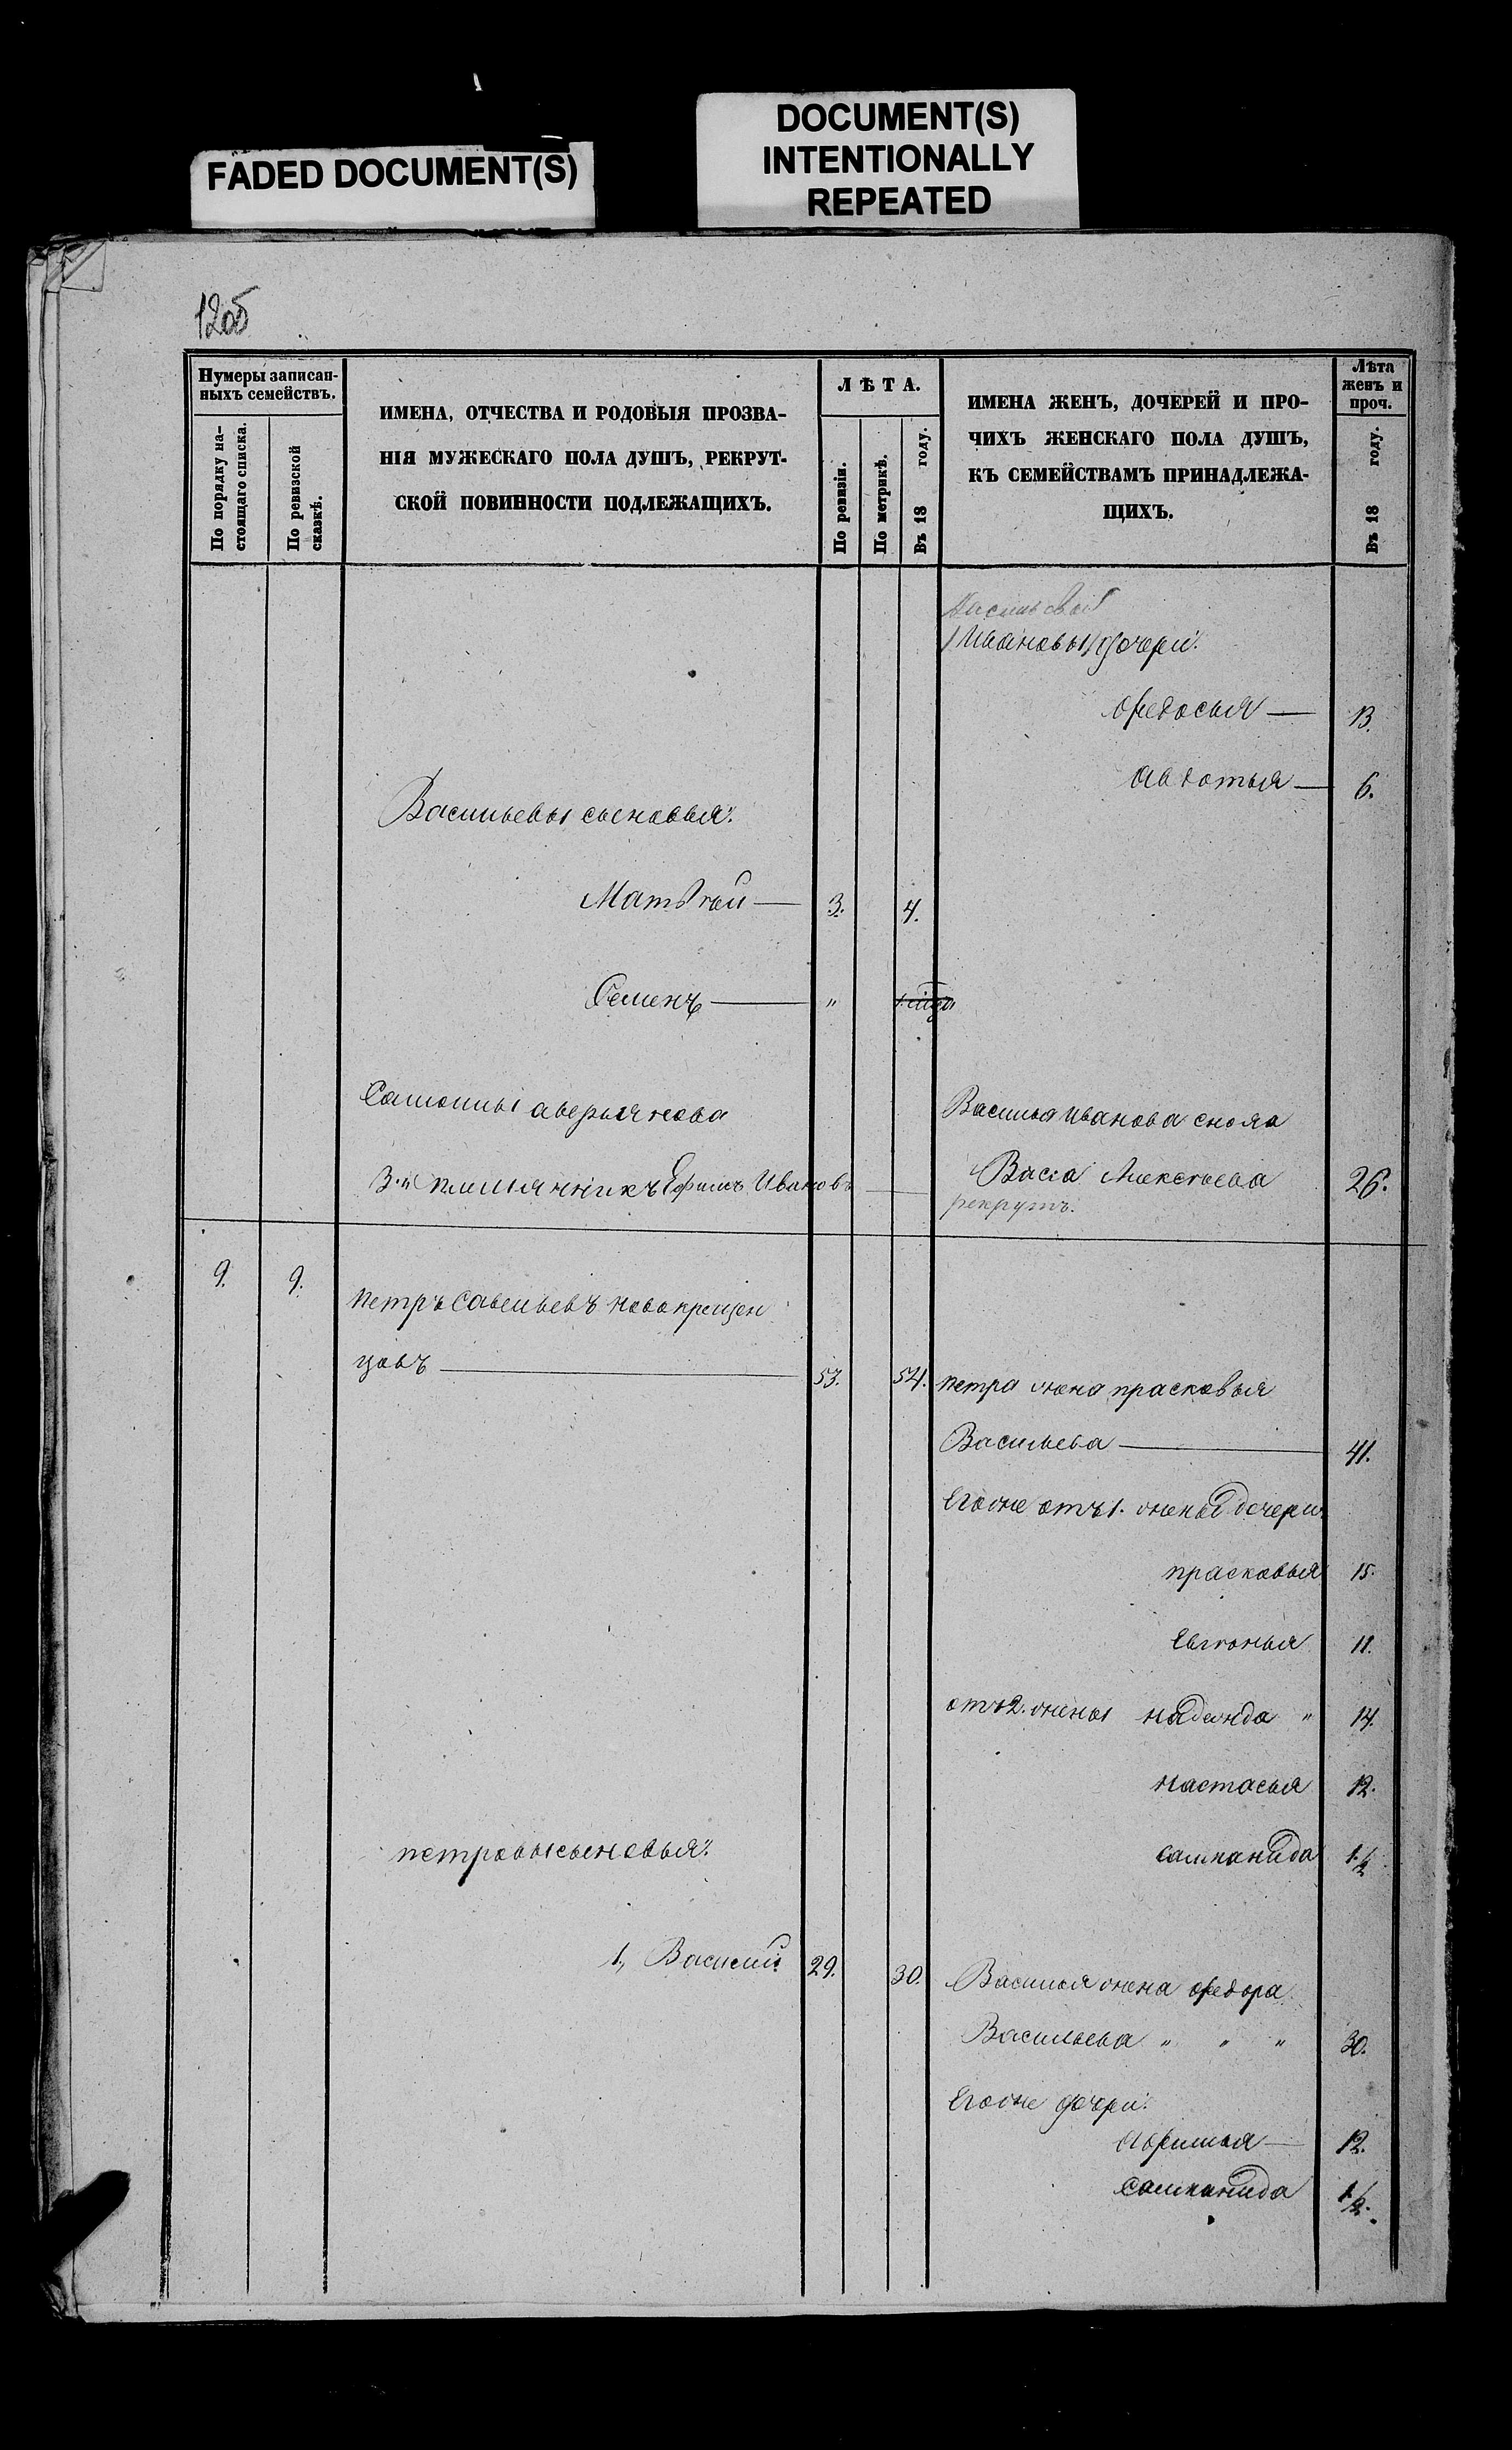 FADED DOCUMENT(S)
DOCUMENT(S)
INTENTIONALLY
REPEATED
12об
Нумеры записан-
ныхъ семействъ.
По порядку на-
стоящаго списка.
По ревизской
сказкѣ.
ИМЕНА, ОТЧЕСТВА И РОДОВЫЯ ПРОЗВА-
НІЯ МУЖЕСКАГО ПОЛА ДУШЪ, РЕКРУТ-
СКОЙ ПОВИННОСТИ ПОДЛЕЖАЩИХЪ.
ЛѢТА.
По ревизіи.
По метрикѣ.
Въ 18 году.
ИМЕНА ЖЕНЪ, ДОЧЕРЕЙ И ПРО-
ЧИХЪ ЖЕНСКАГО ПОЛА ДУШЪ,
КЪ СЕМЕЙСТВАМЪ ПРИНАДЛЕЖА-
ЩИХЪ.
Лѣта
женъ и
проч.
Въ 18 году.
/Ивановы/ дочери:
Федосья — 13.
Авдотья — 6.
Васильевы сыновья:
Матвѣй — 3. 4.
Семенъ — "
аверьянова
Василья Иванова сноха
3.й племянникъ Ефимъ Ивановъ —
Васса Алексѣева 26.
рекрутъ.
9. 9.
петръ Савельевъ новокрещен
цовъ — 53. 54.
петра жена прасковья
Васильева — 41.
Егоже отъ 1. жены дочери
прасковья 15.
Евгенья 11.
отъ 2. жены надежда " 14.
настасья 12.
петровы сыновья:
1, Василий 29. 30.
Василья жена федора
Васильева " " " 30.
Егоже дочери:
12.
1/2.